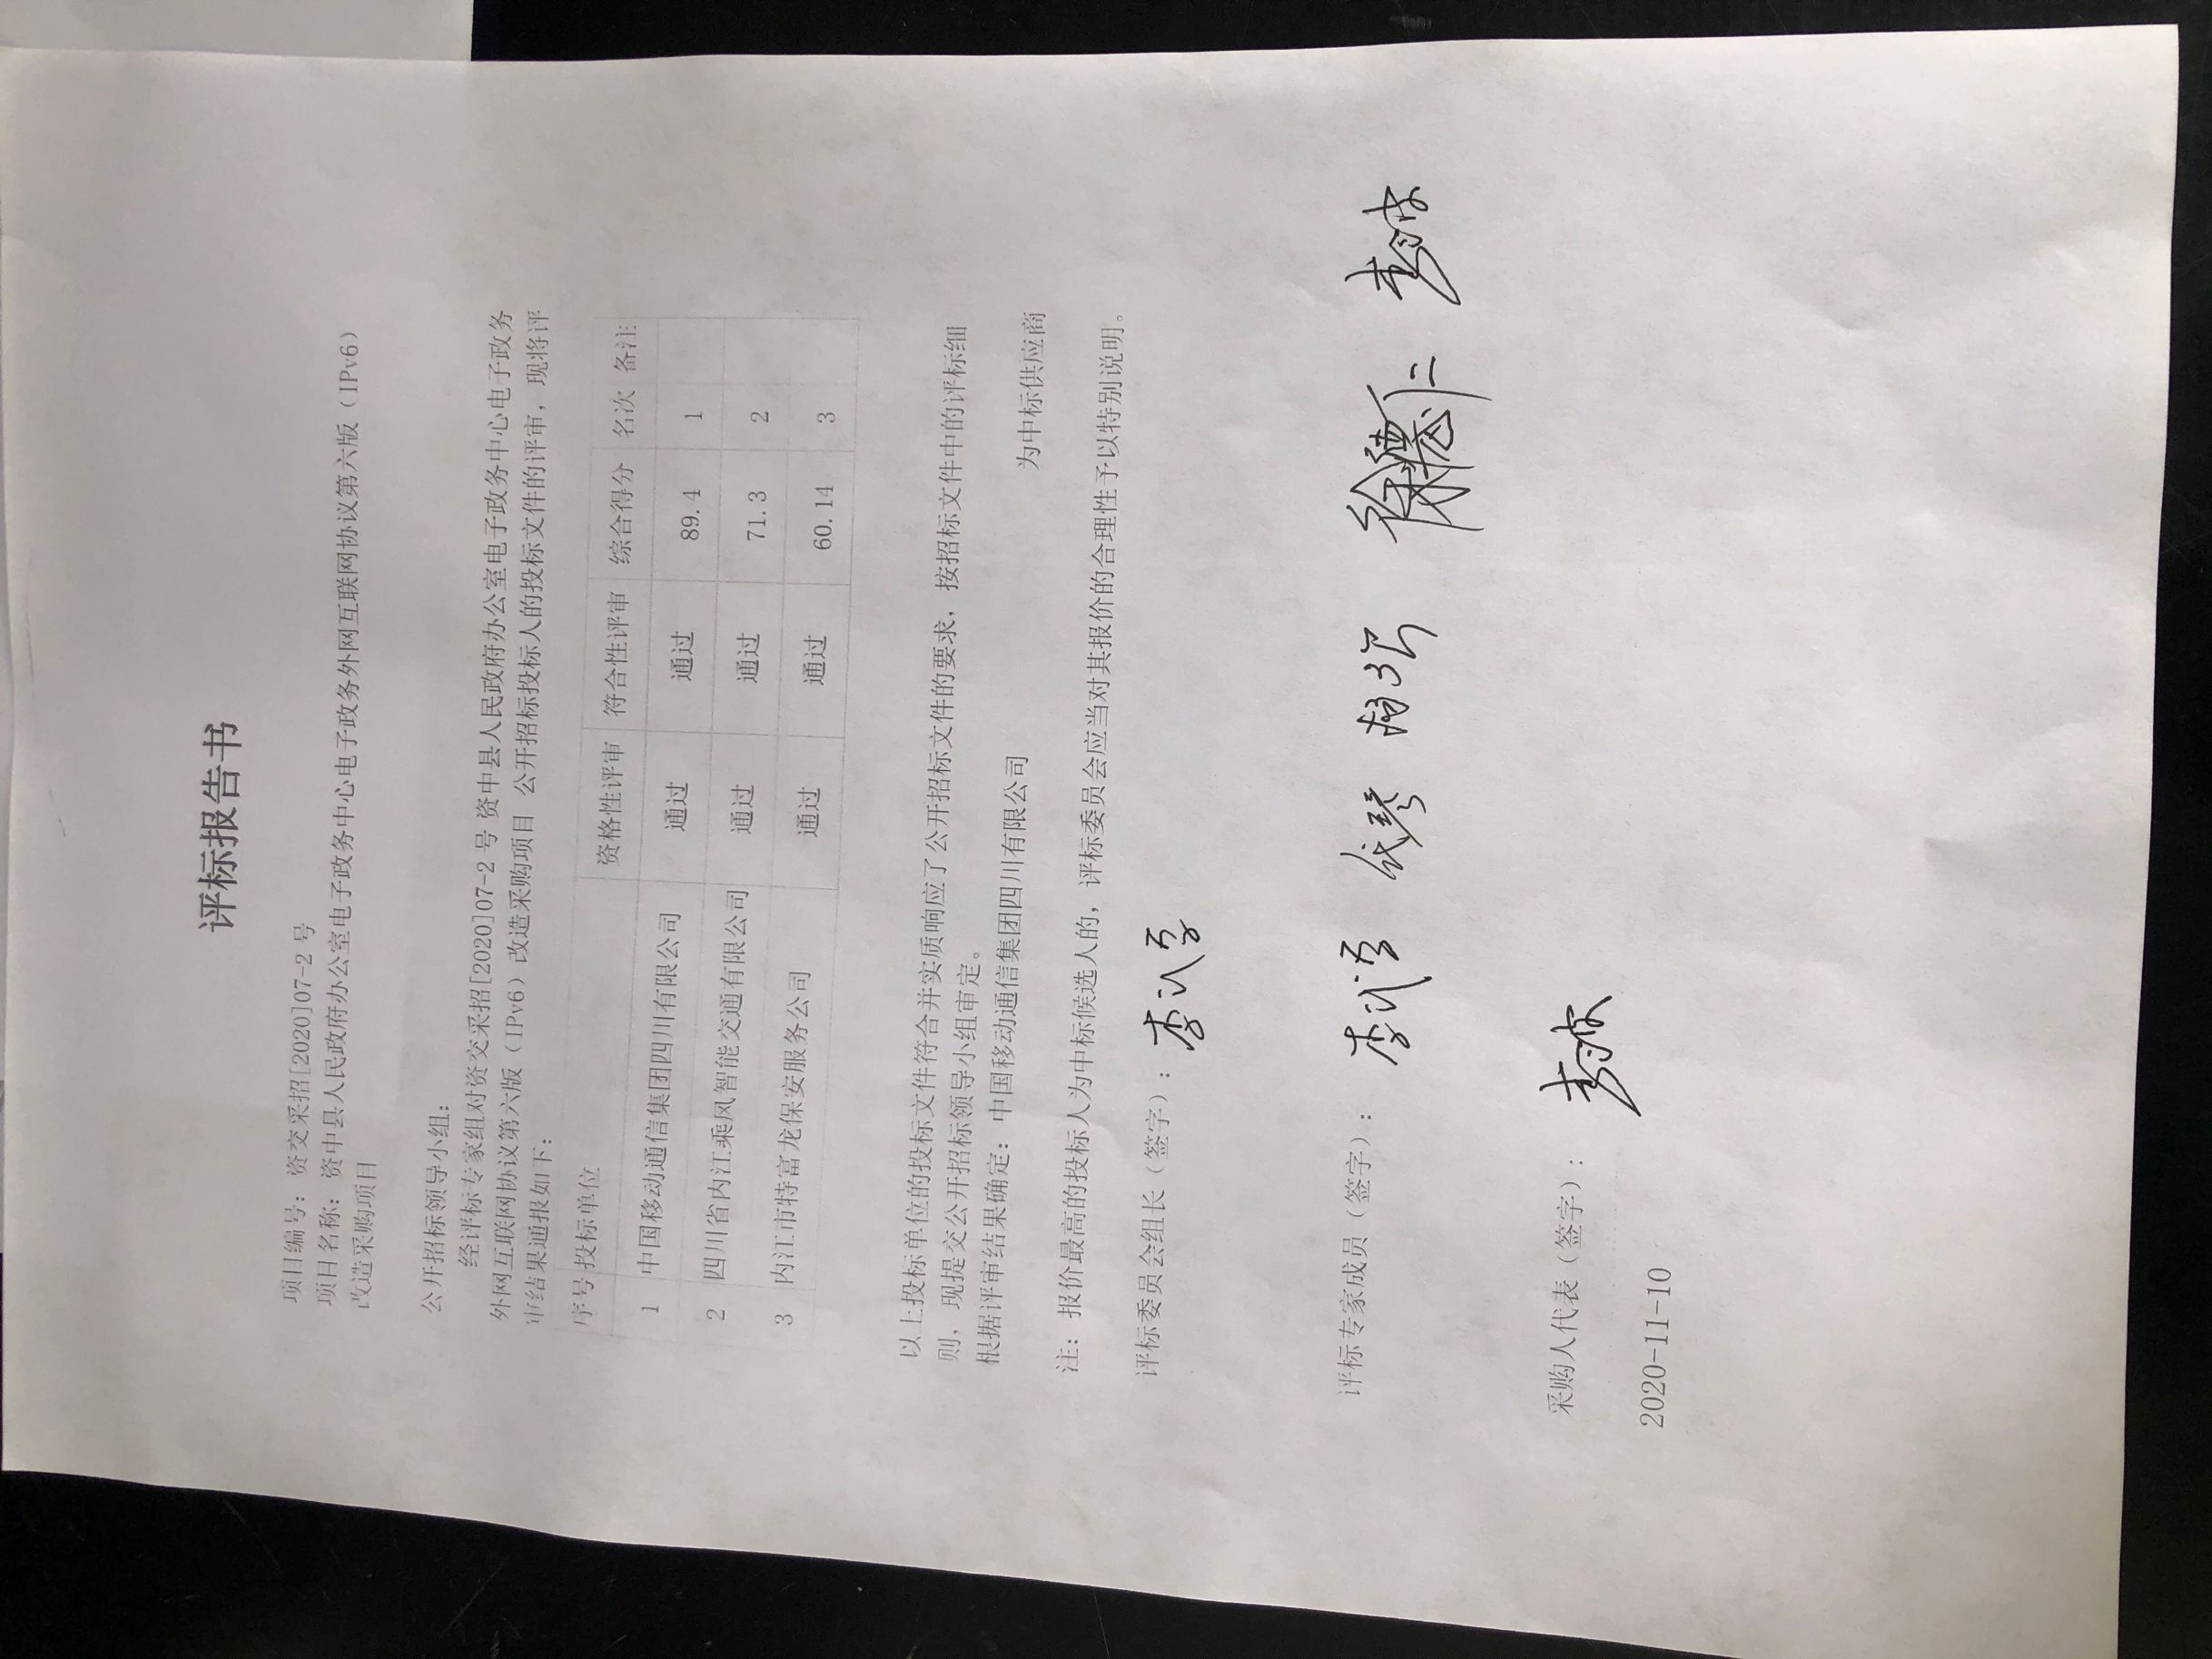 评标报告书
项目编号：资交采招[2020]07-2 号
项目名称：资中县人民政府办公室电子政务中心电子政务外网互联网协议第六版（IPv6）
改造采购项目
公开招标领导小组：
经评标专家组对资交采招[2020]07-2 号 资中县人民政府办公室电子政务中心电子政务
外网互联网协议第六版（IPv6）改造采购项目 公开招标投标人的投标文件的评审，现将评
审结果通报如下：
序号 投标单位 资格性评审 符合性评审 综合得分 名次 备注
1 中国移动通信集团四川有限公司 通过 通过 89.4 1
2 四川省内江乘风智能交通有限公司 通过 通过 71.3 2
3 内江市特富龙保安服务公司 通过 通过 60.14 3
以上投标单位的投标文件符合并实质响应了公开招标文件的要求，按招标文件中的评标细
则，现提交公开招标领导小组审定。
根据评审结果确定：中国移动通信集团四川有限公司 为中标供应商
注：报价最高的投标人为中标候选人的，评标委员会应当对其报价的合理性予以特别说明。
评标委员会组长（签字）：
评标专家成员（签字）： 徐德仁
采购人代表（签字）：
2020-11-10